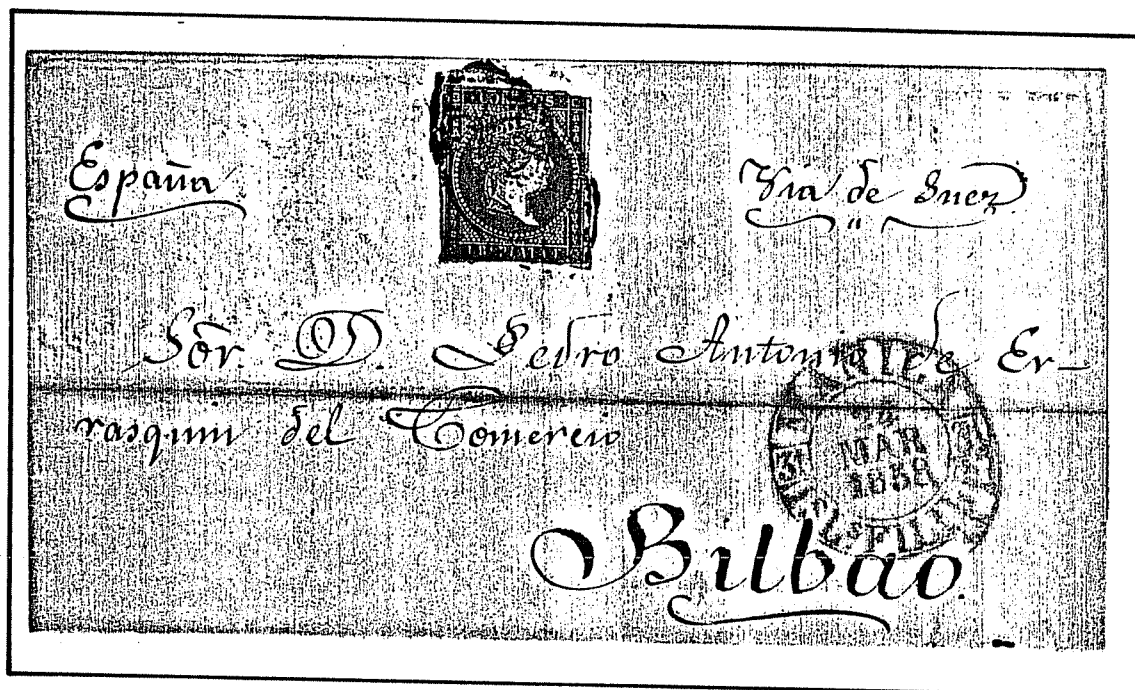 España
Via de Suez
Sōr. D. Pedro Antonio de Er-
rasquin del Comercio
MAR
1858
Bilbao.